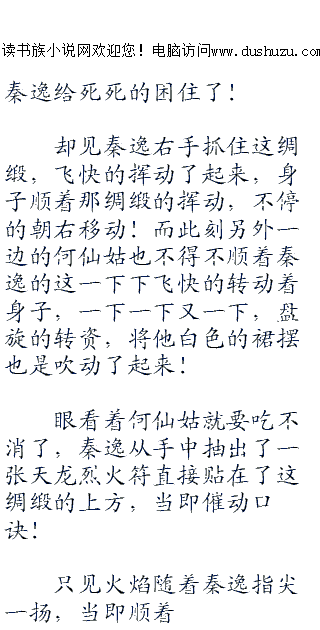 读书族小说网欢迎您！电脑访问www.dushuzu.com
秦逸给死死的困住了！
却见秦逸右手抓住这绸
缎，飞快的挥动了起来，身
子顺着那绸缎的挥动，不停
的朝右移动！而此刻另外一
边的何仙姑也不得不顺着秦
逸的这一下下飞快的转动着
身子，一下一下又一下，盘
旋的转资，将他白色的裙摆
也是吹动了起来！
眼看着何仙姑就要吃不
消了，秦逸从手中抽出了一
张天龙烈火符直接贴在了这
绸缎的上方，当即催动口
诀！
只见火焰随着秦逸指尖
一扬，当即顺着